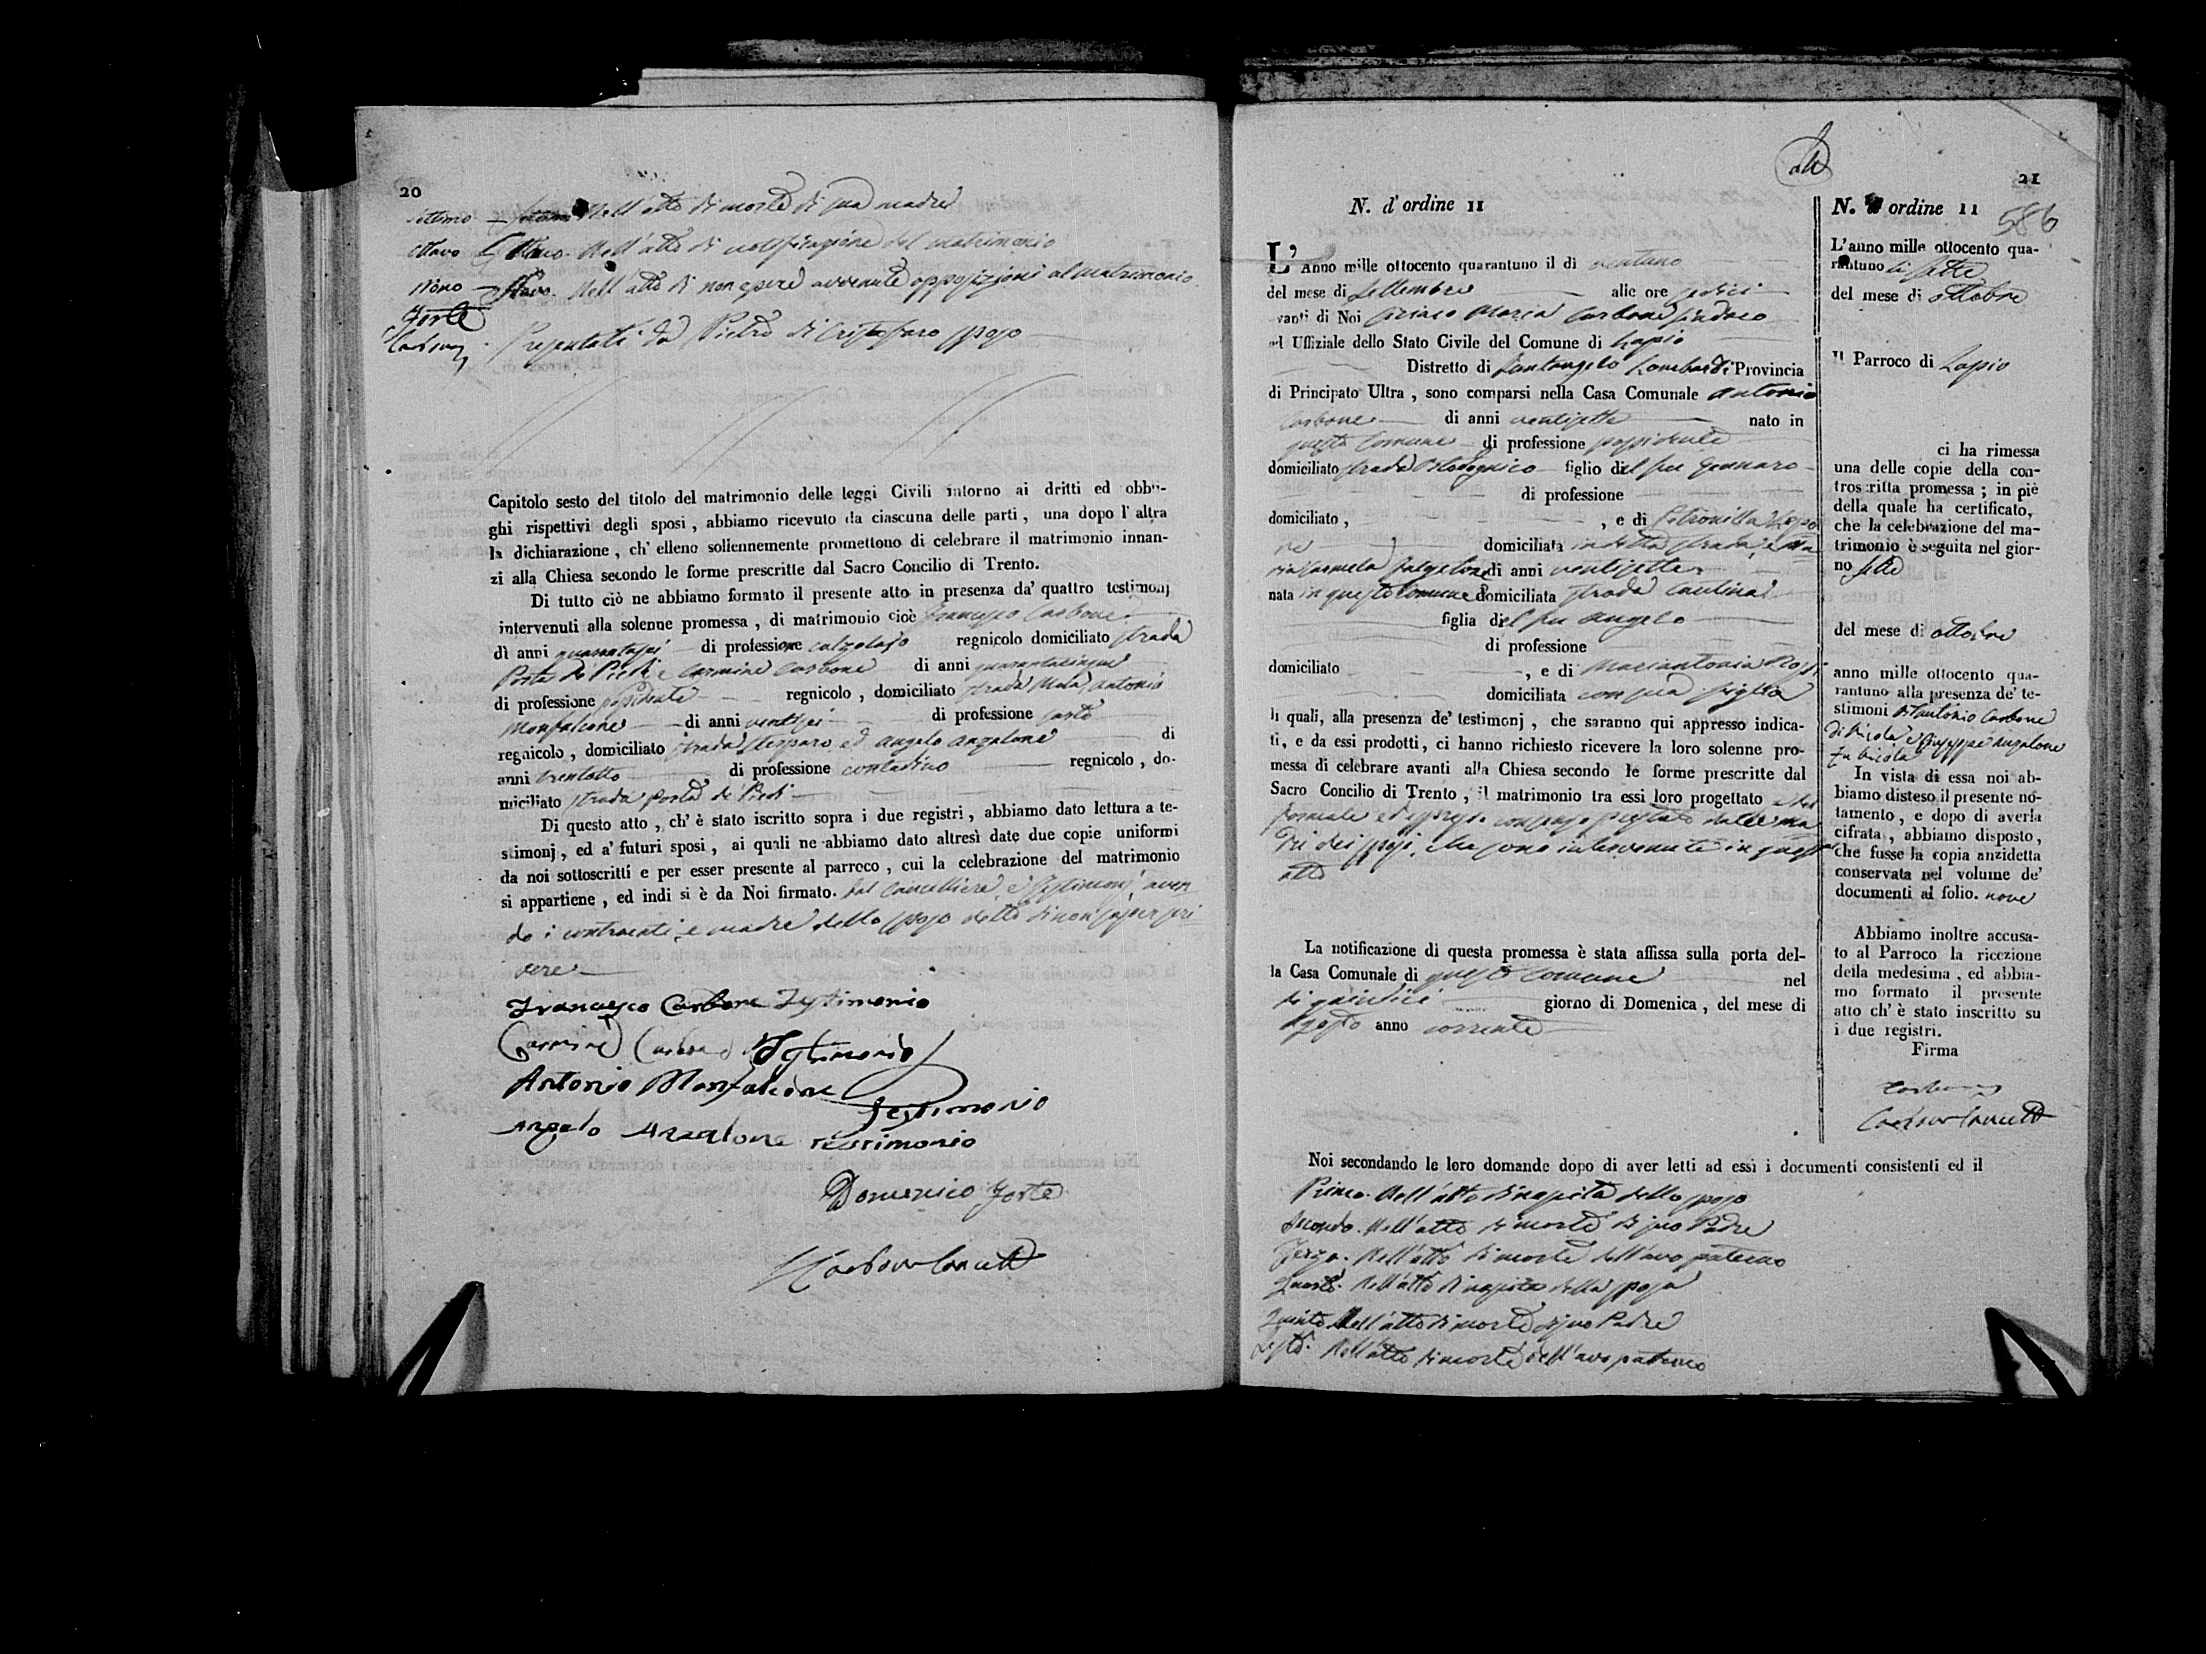 20
Settimo — Nell'atto di morte di sua madre
Ottavo — Nell'atto di notificazione del matrimonio
Nono — Nell'atto di non essere avvenute opposizioni al matrimonio.
Forte
Presentati da Pietro di Cristofaro sposo
Capitolo sesto del titolo del matrimonio delle leggi Civili intorno ai dritti ed obbli-
ghi rispettivi degli sposi, abbiamo ricevuto da ciascuna delle parti, una dopo l'altra
la dichiarazione, ch'elleno sollennemente promettono di celebrare il matrimonio innan-
zi alla Chiesa secondo le forme prescritte dal Sacro Concilio di Trento.
Di tutto ciò ne abbiamo formato il presente atto in presenza da' quattro testimonj
intervenuti alla solenne promessa, di matrimonio cioè Francesco Carbone
di anni quarantasei di professione calzolajo regnicolo domiciliato strada
Porta de Piedi e Carmine Carbone di anni quarantacinque
di professione possidente regnicolo, domiciliato strada Antonio
Monfalcone di anni ventisei di professione sarto
regnicolo, domiciliato strada ed Angelo Anzalone di
anni trentotto di professione contadino regnicolo, do-
miciliato strada porta de Piedi
Di questo atto, ch'è stato iscritto sopra i due registri, abbiamo dato lettura a te-
stimonj, ed a' futuri sposi, ai quali ne abbiamo dato altresì date due copie uniformi
da noi sottoscritti e per esser presente al parroco, cui la celebrazione del matrimonio
si appartiene, ed indi si è da Noi firmato. dal Cancelliere e Testimonj aven
do i contraenti, e madre dello sposo detto di non saper scri
vere
Francesco Carbone Testimonio
Carmine Carbone Testimonio
Antonio Monfalcone Testimonio
Angelo Anzalone testimonio
Domenico Forte
Carbone Canc
21
N. d'ordine 11
L'Anno mille ottocento quarantuno il di ventuno
del mese di Settembre alle ore sedici
vanti di Noi Ciriaco Maria Carbone Sindaco
ed Uffiziale dello Stato Civile del Comune di Lapio
Distretto di Santangelo Lombardi Provincia
di Principato Ultra, sono comparsi nella Casa Comunale Antonio
Carbone di anni ventisette nato in
questo Comune di professione possidente
domiciliato strada figlio del fu Gennaro
di professione
domiciliato, , e di Petronilla
domiciliata in detta strada, e Ma
ria Carmela di anni ventisette
nata in questo Comune domiciliata strada Cantina
figlia del fu Angelo
di professione
domiciliato , e di Mariantonia Rossi
domiciliata con sua figlia
li quali, alla presenza de' testimonj, che saranno qui appresso indica-
ti, e da essi prodotti, ci hanno richiesto ricevere la loro solenne pro-
messa di celebrare avanti alla Chiesa secondo le forme prescritte dal
Sacro Concilio di Trento, il matrimonio tra essi loro progettato
formale ed espresso consenso prestato dalle ma
dri dei sposi, che sono intervenute in quest'
atto
La notificazione di questa promessa è stata affissa sulla porta del-
la Casa Comunale di questo Comune nel
di quindici giorno di Domenica, del mese di
Agosto anno corrente
N. d'ordine 11
586
L'anno mille ottocento qua-
rantuno li sette
del mese di ottobre
Il Parroco di Lapio
ci ha rimessa
una delle copie della con-
troscritta promessa; in piè
della quale ha certificato,
che la celebrazione del ma-
trimonio è seguita nel gior-
no sette
del mese di ottobre
anno mille ottocento qua-
rantuno alla presenza de' te-
stimoni Antonio Carbone
di Nicola e Giuseppe Anzalone
fu Nicola
In vista di essa noi ab-
biamo disteso il presente no-
tamento, e dopo di averla
cifrata, abbiamo disposto,
che fusse la copia anzidetta
conservata nel volume de'
documenti al folio. nove
Abbiamo inoltre accusa-
to al Parroco la ricezione
della medesima, ed abbia-
mo formato il presente
atto ch'è stato inscritto su
i due registri.
Firma
Carbone
Carbone Canc
Noi secondando le loro domande dopo di aver letti ad essi i documenti consistenti ed il
Primo. Nell'atto di nascita dello sposo
Secondo. Nell'atto di morte di suo Padre
Terzo. Nell'atto di morte dell'avo paterno
Quarto. Nell'atto di nascita della sposa
Quinto. Nell'atto di morte di suo Padre
Sesto. Nell'atto di morte dell'avo paterno